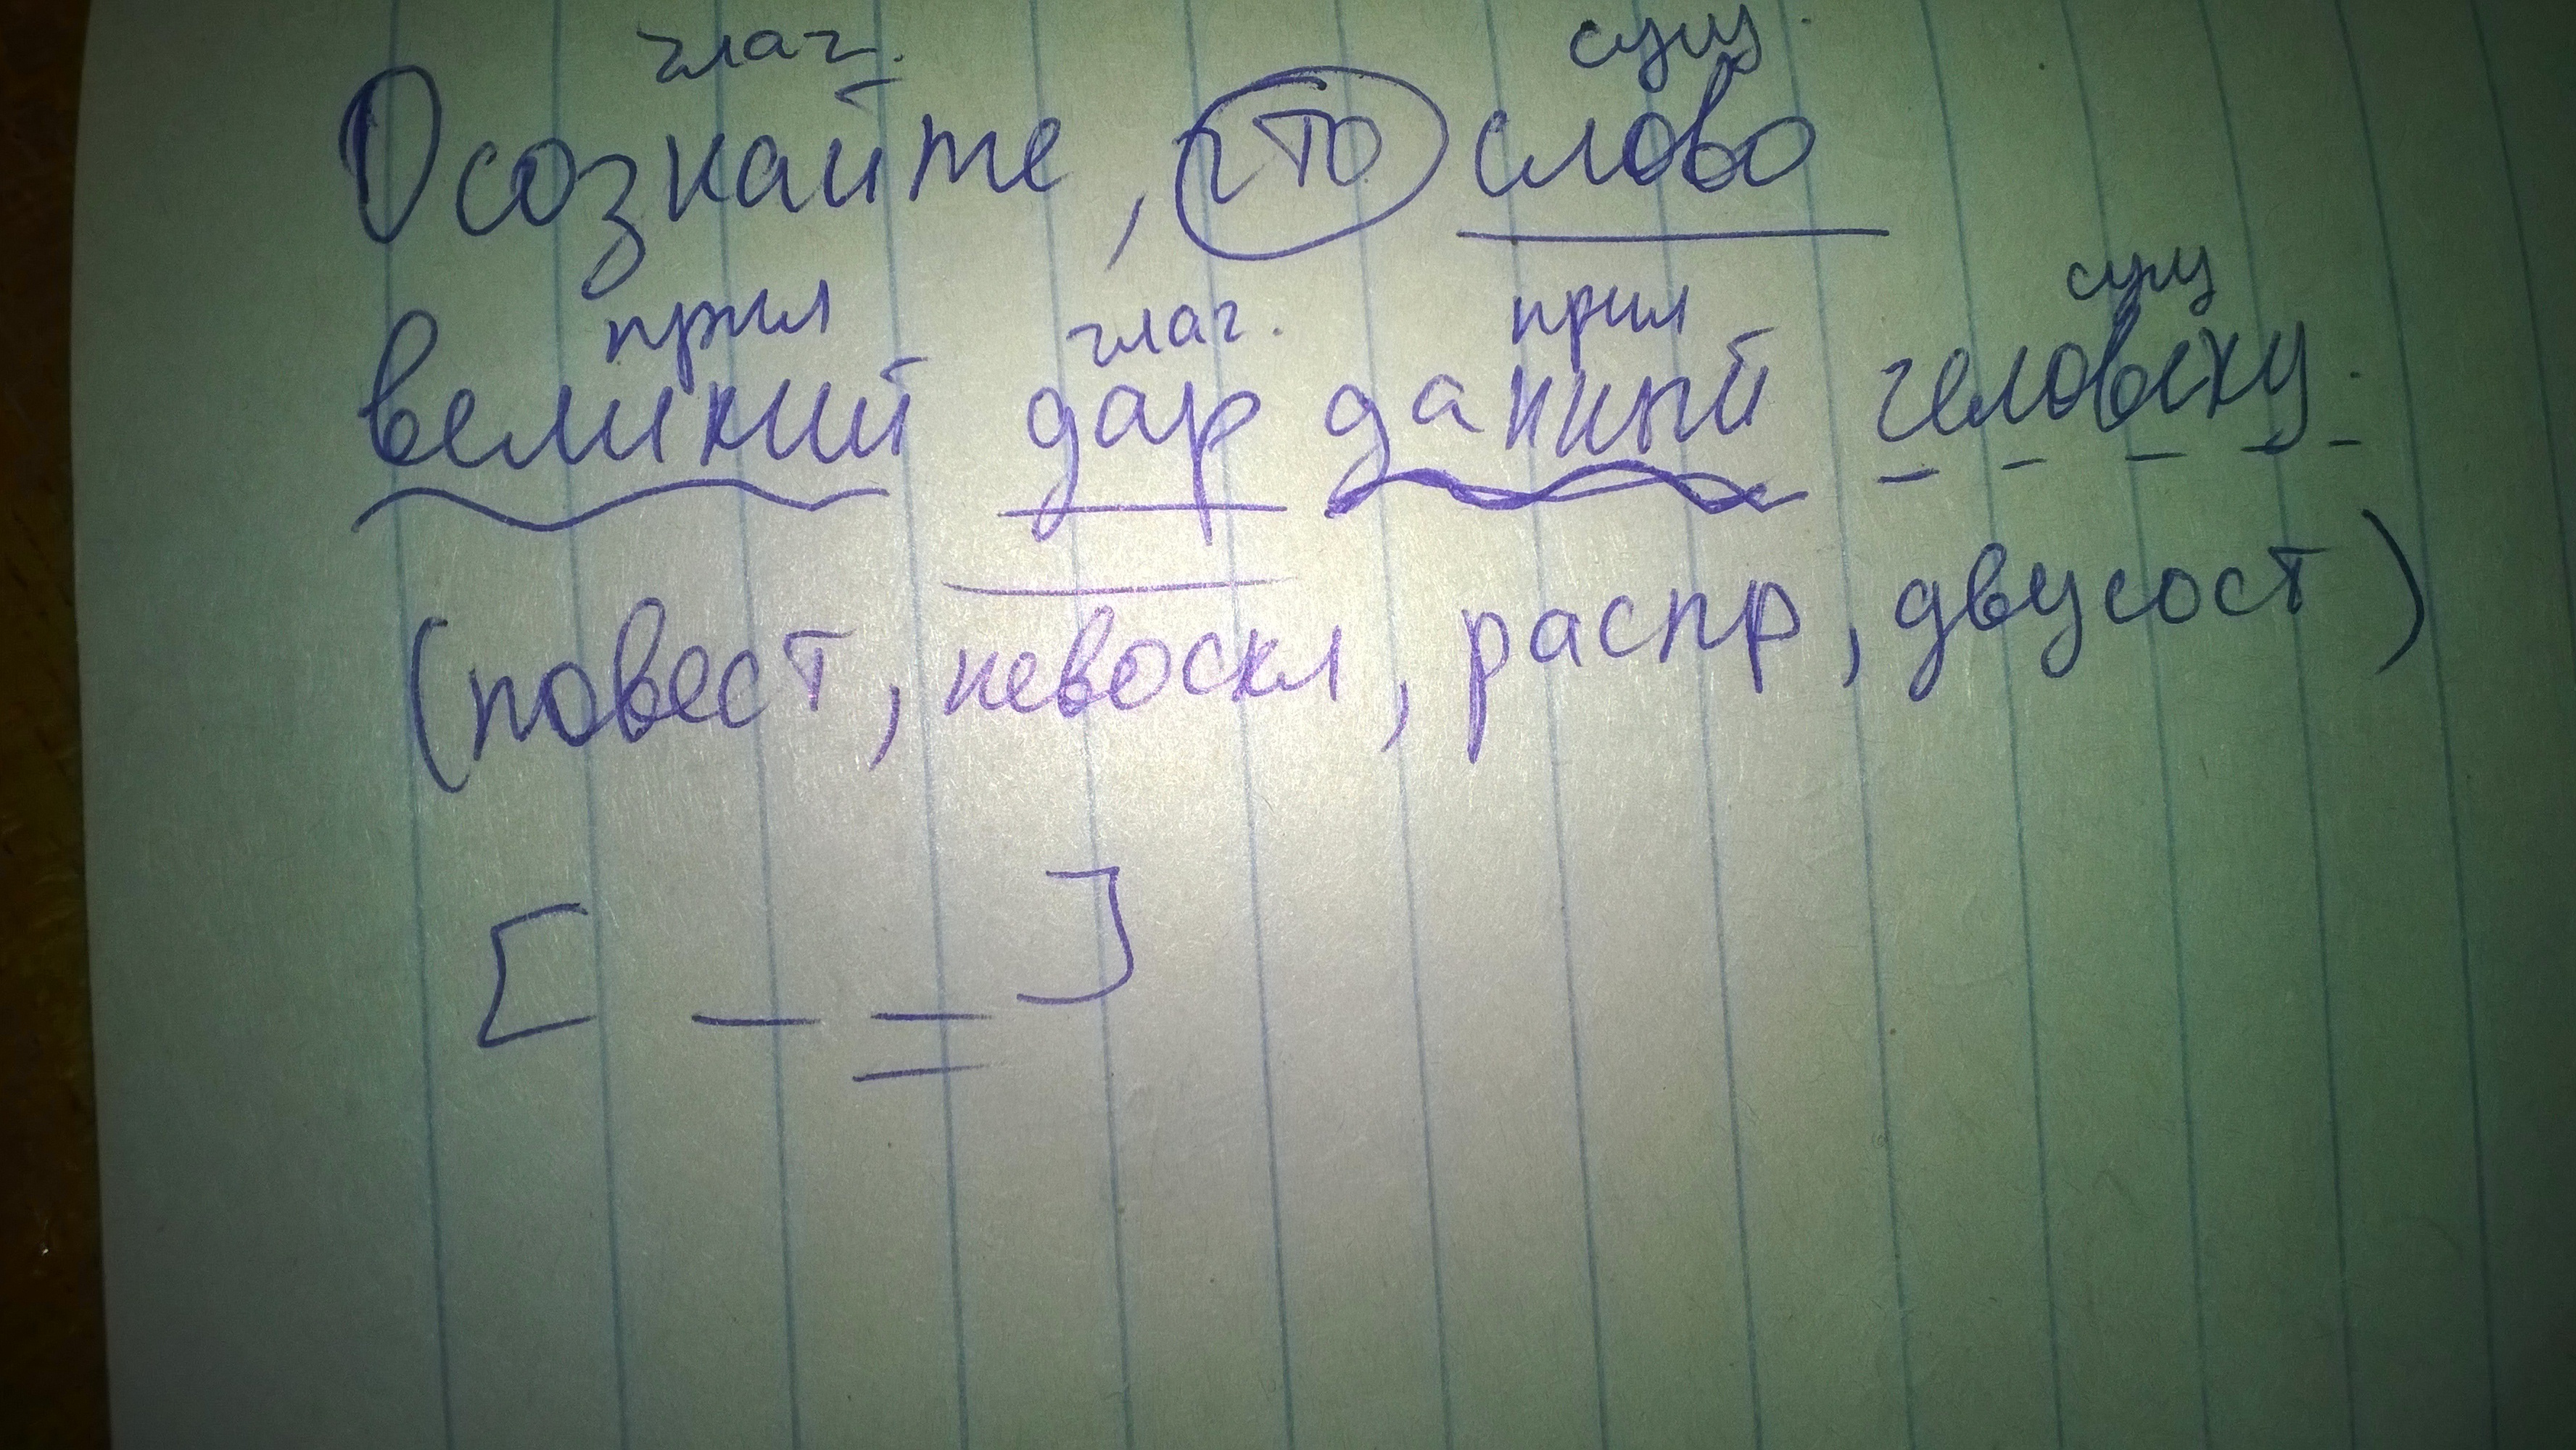 глаг. сущ.
Осознайте, что слово
прил глаг. прил сущ
великий дар даный человеку.
(повест, невоскл, распр, двусост)
[ _ = ]